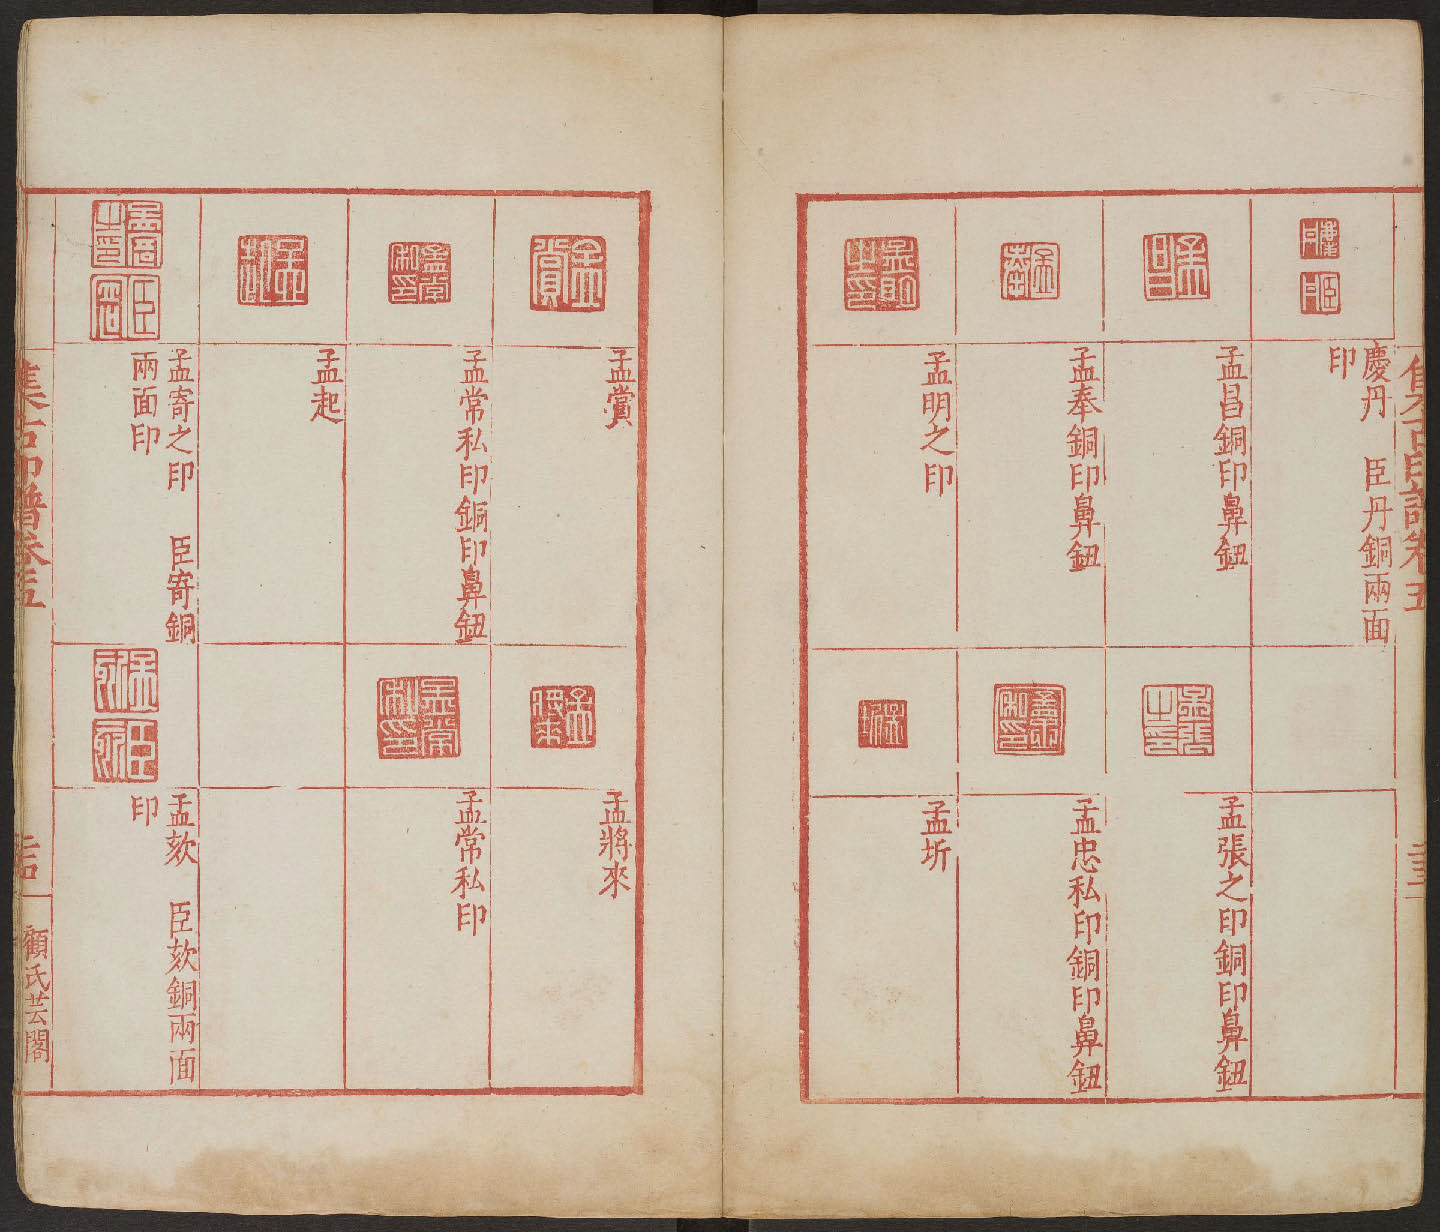 集古印譜卷五
慶丹　臣丹銅兩面
印
孟昌銅印鼻鈕
孟張之印銅印鼻鈕
孟奉銅印鼻鈕
孟忠私印銅印鼻鈕
孟明之印
孟圻
孟賞
孟將來
孟常私印銅印鼻鈕
孟常私印
孟起
孟寄之印　臣寄銅
兩面印
孟欬　臣欬銅兩面
印
集古印譜卷五
顧氏芸閣